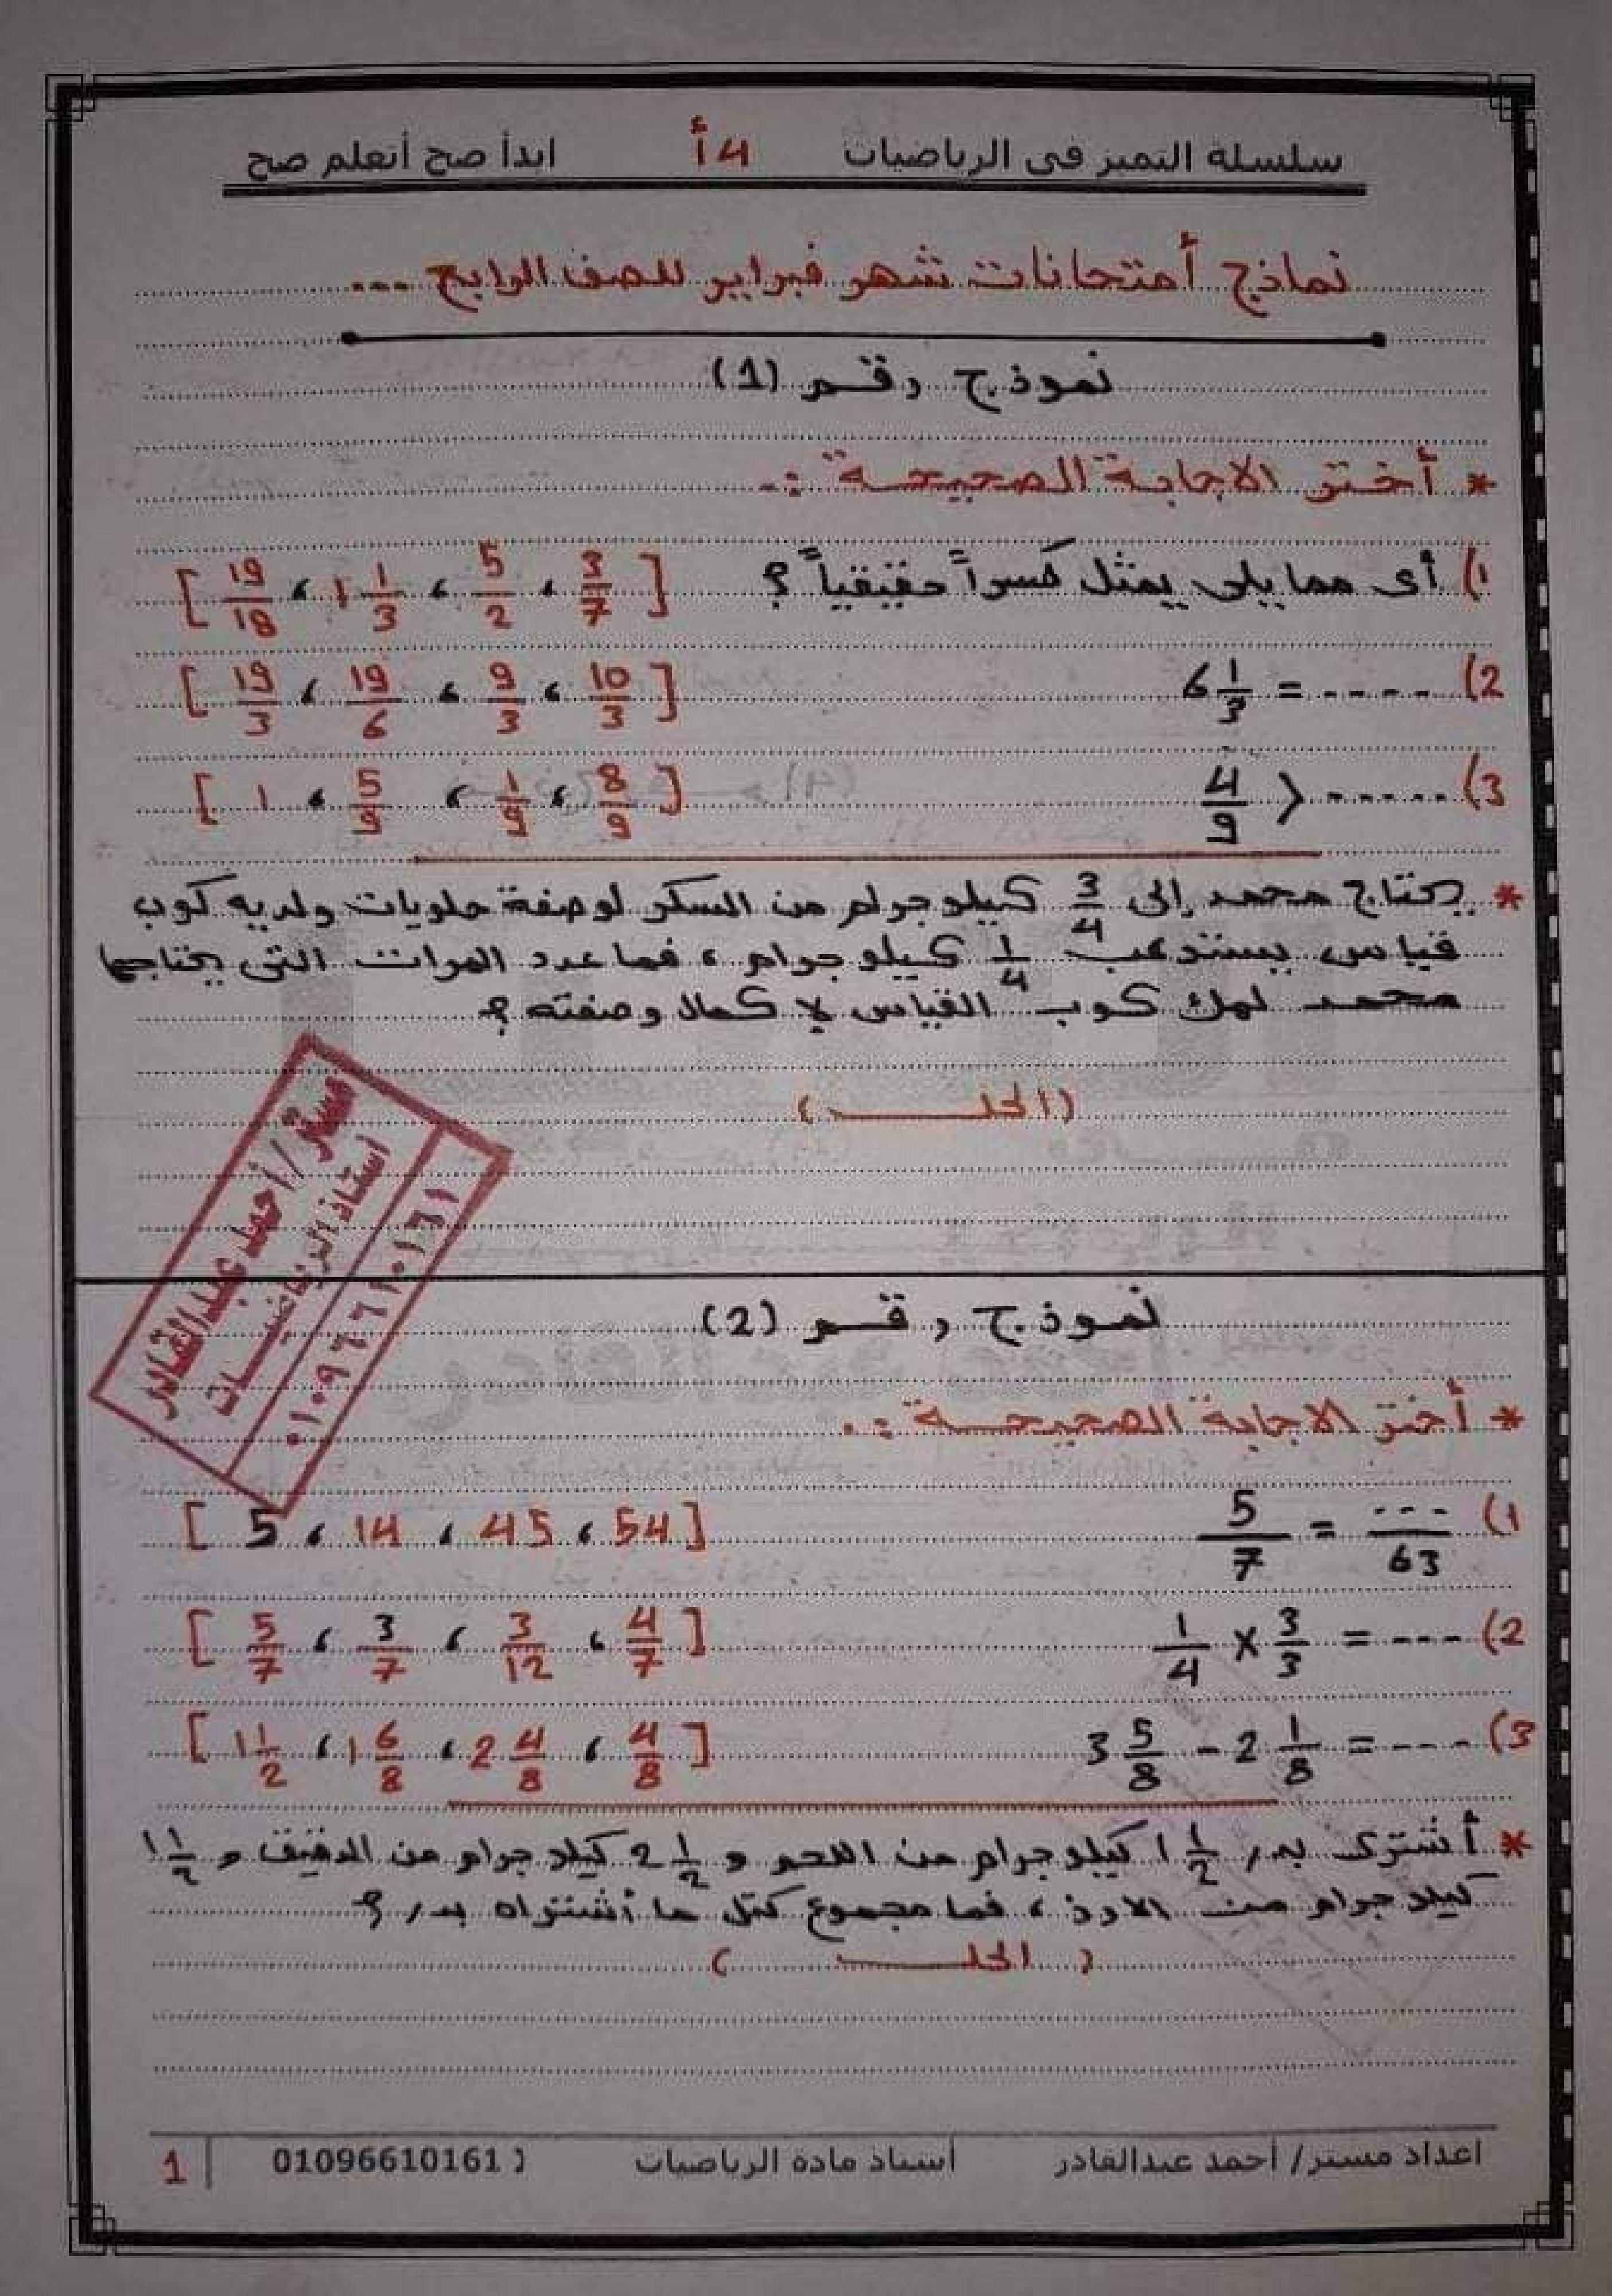 سلسلة التميز في الرياضيات 4أ ابدأ صح أتعلم صح
نماذج أمتحانات شهر فبراير للصف الرابع ...
نموذج رقم (1)
* أختر الاجابة الصحيحة :.
1) أى مما يلى يمثل كسراً حقيقياً ؟ [ 19/18 ، 1 1/3 ، 5/2 ، 3/7 ]
2) 6 1/3 = ----- [ 19/3 ، 19/6 ، 9/3 ، 10/3 ]
3) 4/9 > ------ [ 1 ، 5/9 ، 1/9 ، 8/9 ]
* يحتاج محمد إلى 3/4 كيلو جرام من السكر لوصفة حلويات ولديه كوب
قياس يستوعب 1/4 كيلو جرام ، فما عدد المرات التى يحتاجها
محمد لملئ كوب القياس لإكمال وصفته ؟
(الحل)
مستر / أحمد عبدالقادر
استاذ الرياضيات
٠١٠٩٦٦١٠١٦١
نموذج رقم (2)
* أختر الاجابة الصحيحة :.
1) 5/7 = .../63 [ 5 ، 14 ، 45 ، 54 ]
2) 1/4 × 3/3 = --- [ 5/7 ، 3/7 ، 3/12 ، 4/7 ]
3) 3 5/8 - 2 1/8 = --- [ 1 1/2 ، 1 6/8 ، 2 4/8 ، 4/8 ]
* أشترى بدر 1 1/2 كيلو جرام من اللحم و 2 1/2 كيلو جرام من الدقيق و 1 1/2
كيلو جرام من الارز ، فما مجموع كتل ما أشتراه بدر ؟
( الحل )
اعداد مستر/ أحمد عبدالقادر أستاذ مادة الرياضيات ( 01096610161 1